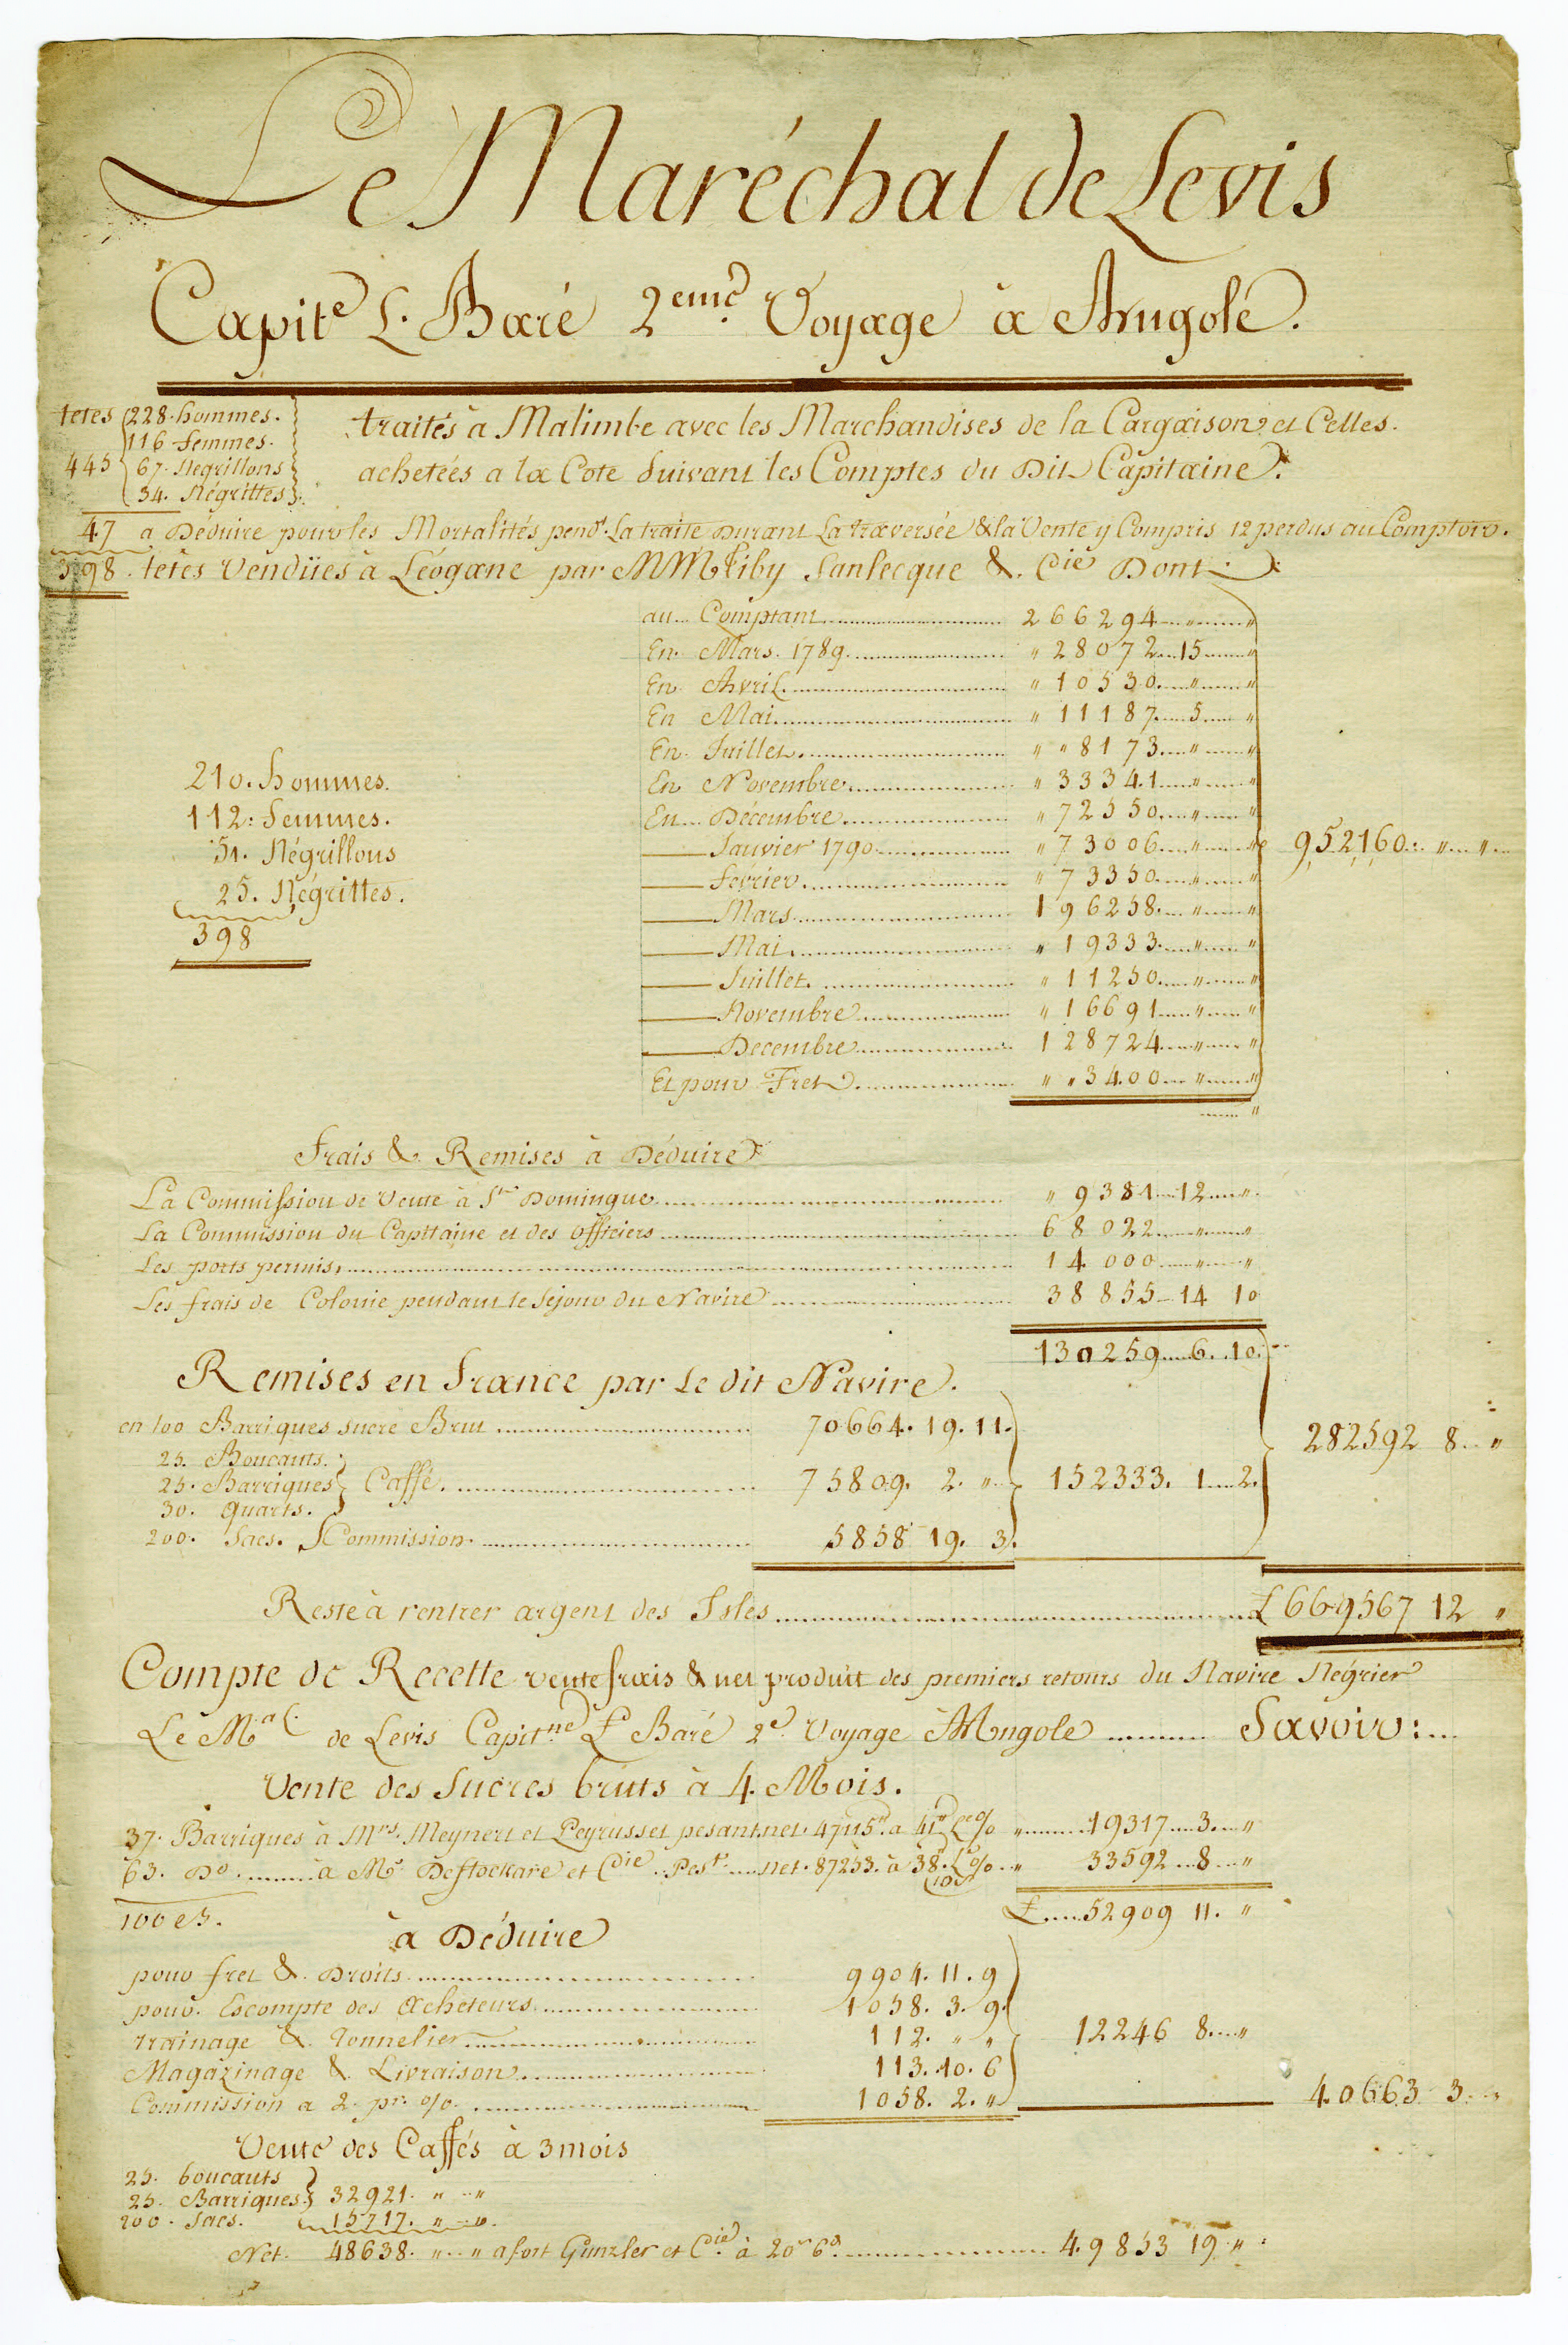 Le Maréchal de Levis
Capit.e L. Baré 2eme. Voyage à Angole.
têtes 228. hommes.
116. femmes.
445 67. Negrillons
34. Négrittes
traités à Malimbe avec les Marchandises de la Cargaison et Celles.
achetées a la Cote Suivant les Comptes du Dit Capitaine.
47 a Déduire pour les Mortalités pendt. La traite Durant La traversée & la Vente y Compris 12 perdus au Comptoir.
398. têtes Vendües à Léogane par MM Liby Sanlecque & Cie Dont:
au Comptant 266294 " "
En Mars 1789 " 28072 15 "
En Avril " 10530 " "
En Mai " 11187 5 "
En Juillet " " 8173 " "
En Novembre " 33341 " "
En Décembre " 72550 " "
Janvier 1790 " 73006 " " 952160 " "
Fevrier " 73350 " "
Mars 196258 " "
Mai " 19333 " "
Juillet " 11250 " "
Novembre " 16691 " "
Decembre 128724 " "
Et pour Fret " " 3400 " "
210. hommes.
112. femmes.
51. Négrillons
25. Négrittes.
398
Frais & Remises à Déduire
La Commission de Vente à St Domingue " 9381 12 "
La Commission du Capitaine et des officiers 68022 " "
Les ports permis 14000 " "
Les frais de Colonie pendant le Sejour du Navire 38855 14 10
130259 6 10
Remises en France par Le dit Navire.
en 100 Barriques sucre Brut 70664. 19. 11.
25. Boucauts.
25. Barriques Caffé. 75809. 2. " 152333. 1 2. 282592 8 "
30. Quarts.
200. Sacs. Commission. 5858 19. 3.
Reste à rentrer argent des Isles £ 669567 12 "
Compte de Recette vente frais & net produit des premiers retours du Navire Négrier
Le Mal. de Levis Capitne L Baré 2e Voyage à Angole Savoir:
Vente des Sucres bruts à 4. Mois.
37. Barriques à Mrs. Meynert et Peyrusset pesant net. 47115. a 41 Le % " 19317 3 "
63. Do. à Mr Destockare et Cie. Pest. net. 87253. à 38. 10s L % " 33592 8 "
100 es. £ 52909 11. "
à Déduire
pour fret & Droits 9904. 11. 9
pour Escompte des acheteurs 1058. 3. 9.
trainage & Tonnelier 112. " " 12246 8 "
Magazinage & Livraison 113. 10. 6
Commission a 2. pr. % 1058. 2. " 40663 3 "
Vente des Caffés à 3 mois
25. boucauts
25. Barriques 32921. " "
200. Sacs. 15717. " "
Net. 48638. " " a fort Gunzler et Cie. à 20s 6d 49853 19 "